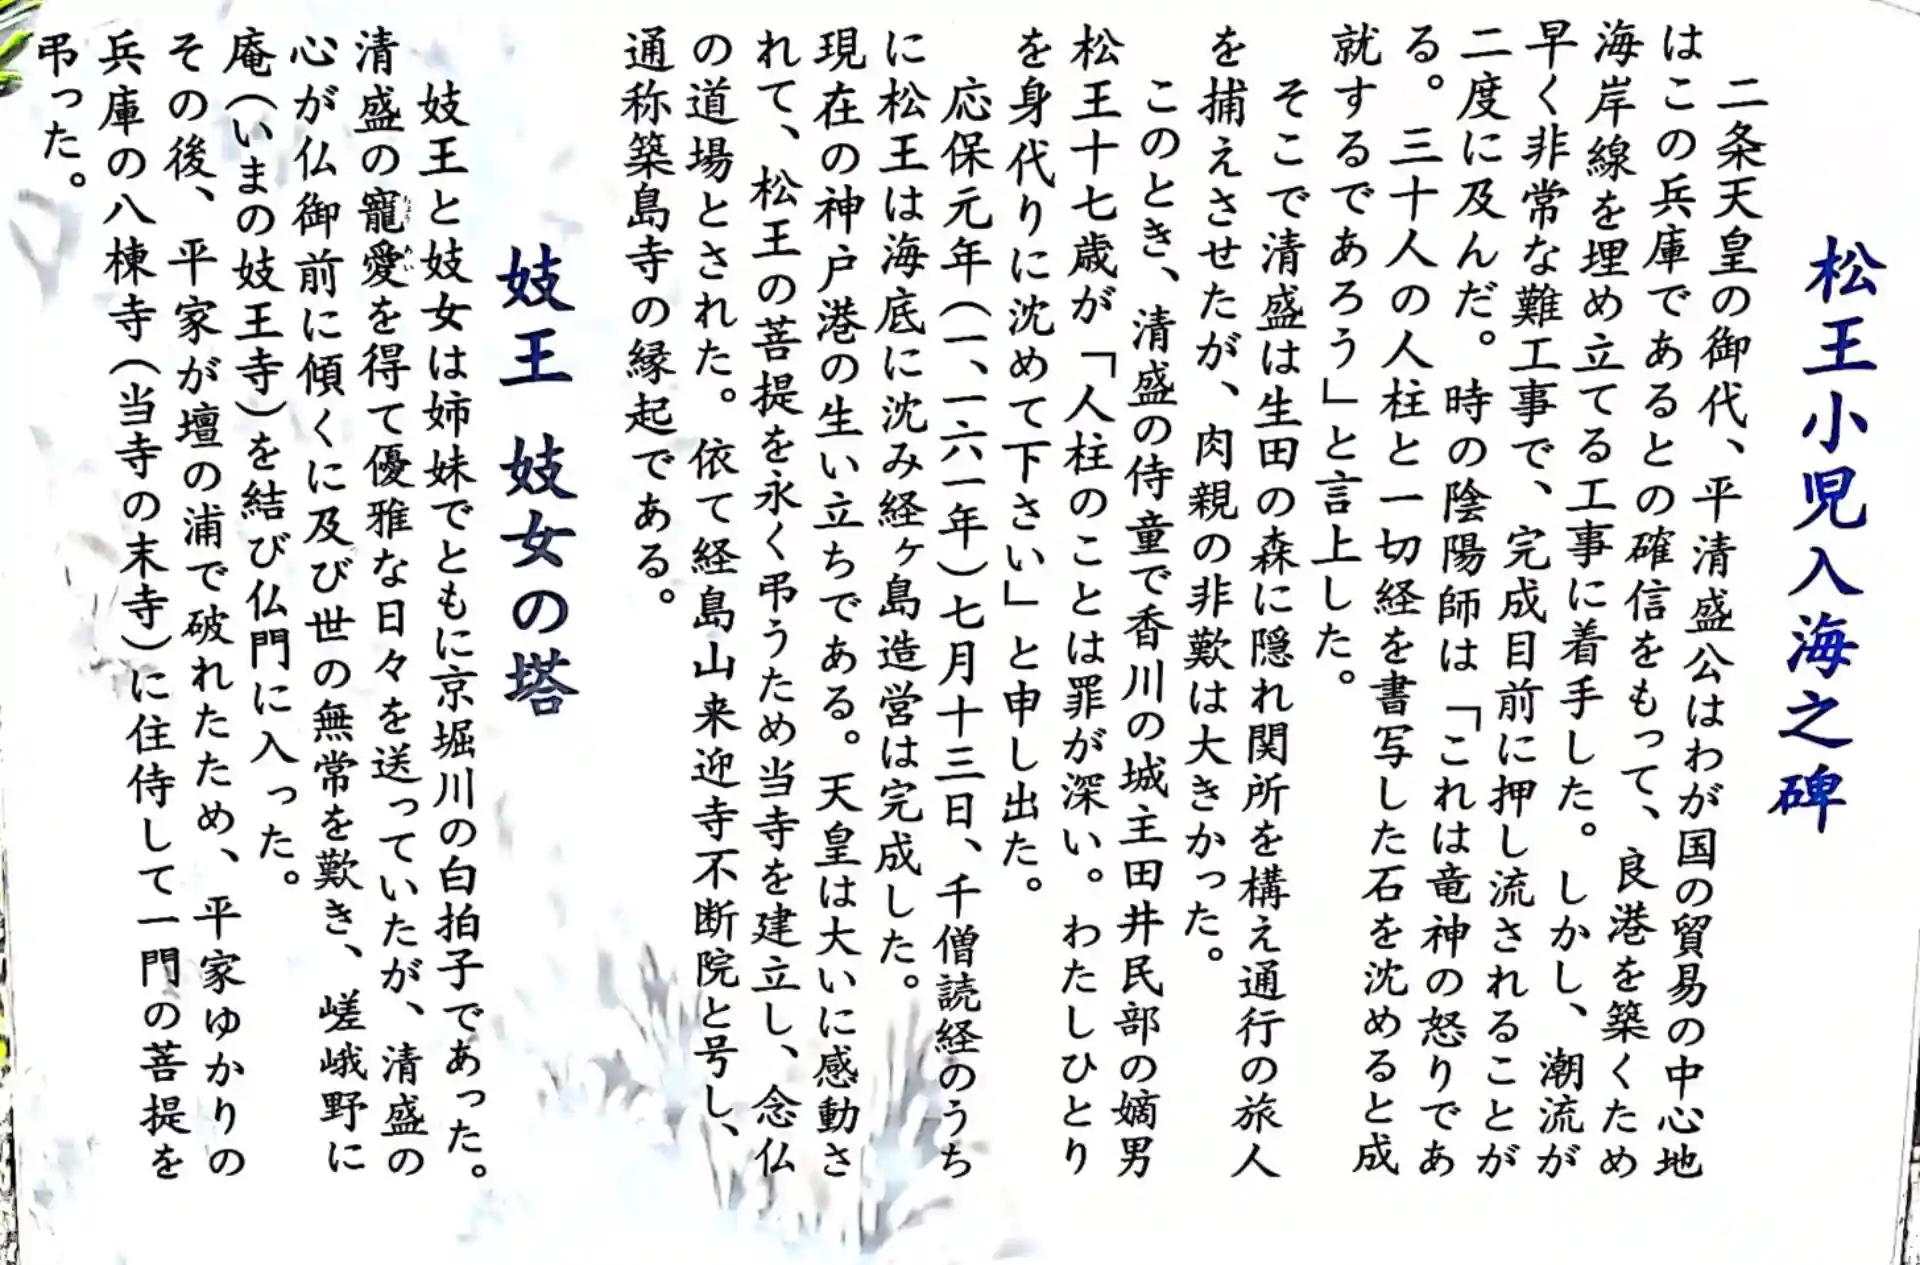 松王小児入海之碑
二条天皇の御代、平清盛公はわが国の貿易の中心地
はこの兵庫であるとの確信をもって、良港を築くため
海岸線を埋め立てる工事に着手した。しかし、潮流が
早く非常な難工事で、完成目前に押し流されることが
二度に及んだ。時の陰陽師は「これは竜神の怒りであ
る。三十人の人柱と一切経を書写した石を沈めると成
就するであろう」と言上した。
そこで清盛は生田の森に隠れ関所を構え通行の旅人
を捕えさせたが、肉親の非歎は大きかった。
このとき、清盛の侍童で香川の城主田井民部の嫡男
松王十七歳が「人柱のことは罪が深い。わたしひとり
を身代りに沈めて下さい」と申し出た。
応保元年(一、一六一年)七月十三日、千僧読経のうち
に松王は海底に沈み経ヶ島造営は完成した。
現在の神戸港の生い立ちである。天皇は大いに感動さ
れて、松王の菩提を永く弔うため当寺を建立し、念仏
の道場とされた。依て経島山来迎寺不断院と号し、
通称築島寺の縁起である。
妓王 妓女の塔
妓王と妓女は姉妹でともに京堀川の白拍子であった。
清盛の寵愛を得て優雅な日々を送っていたが、清盛の
ちょう めい
心が仏御前に傾くに及び世の無常を歎き、嵯峨野に
庵(いまの妓王寺)を結び仏門に入った。
その後、平家が壇の浦で破れたため、平家ゆかりの
兵庫の八棟寺(当寺の末寺)に住侍して一門の菩提を
弔った。